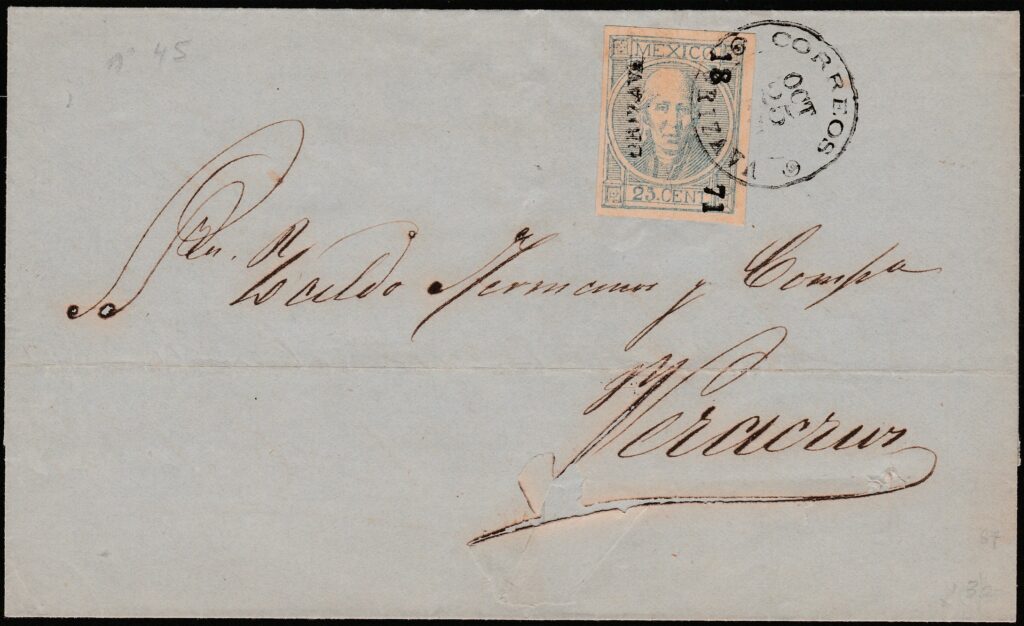 45
MEXICO
ORIZAVA
18 71
25.CENT
CORREOS
OCT
25
RIZAVA
Zaldo Hermanos y Compa
Veracruz